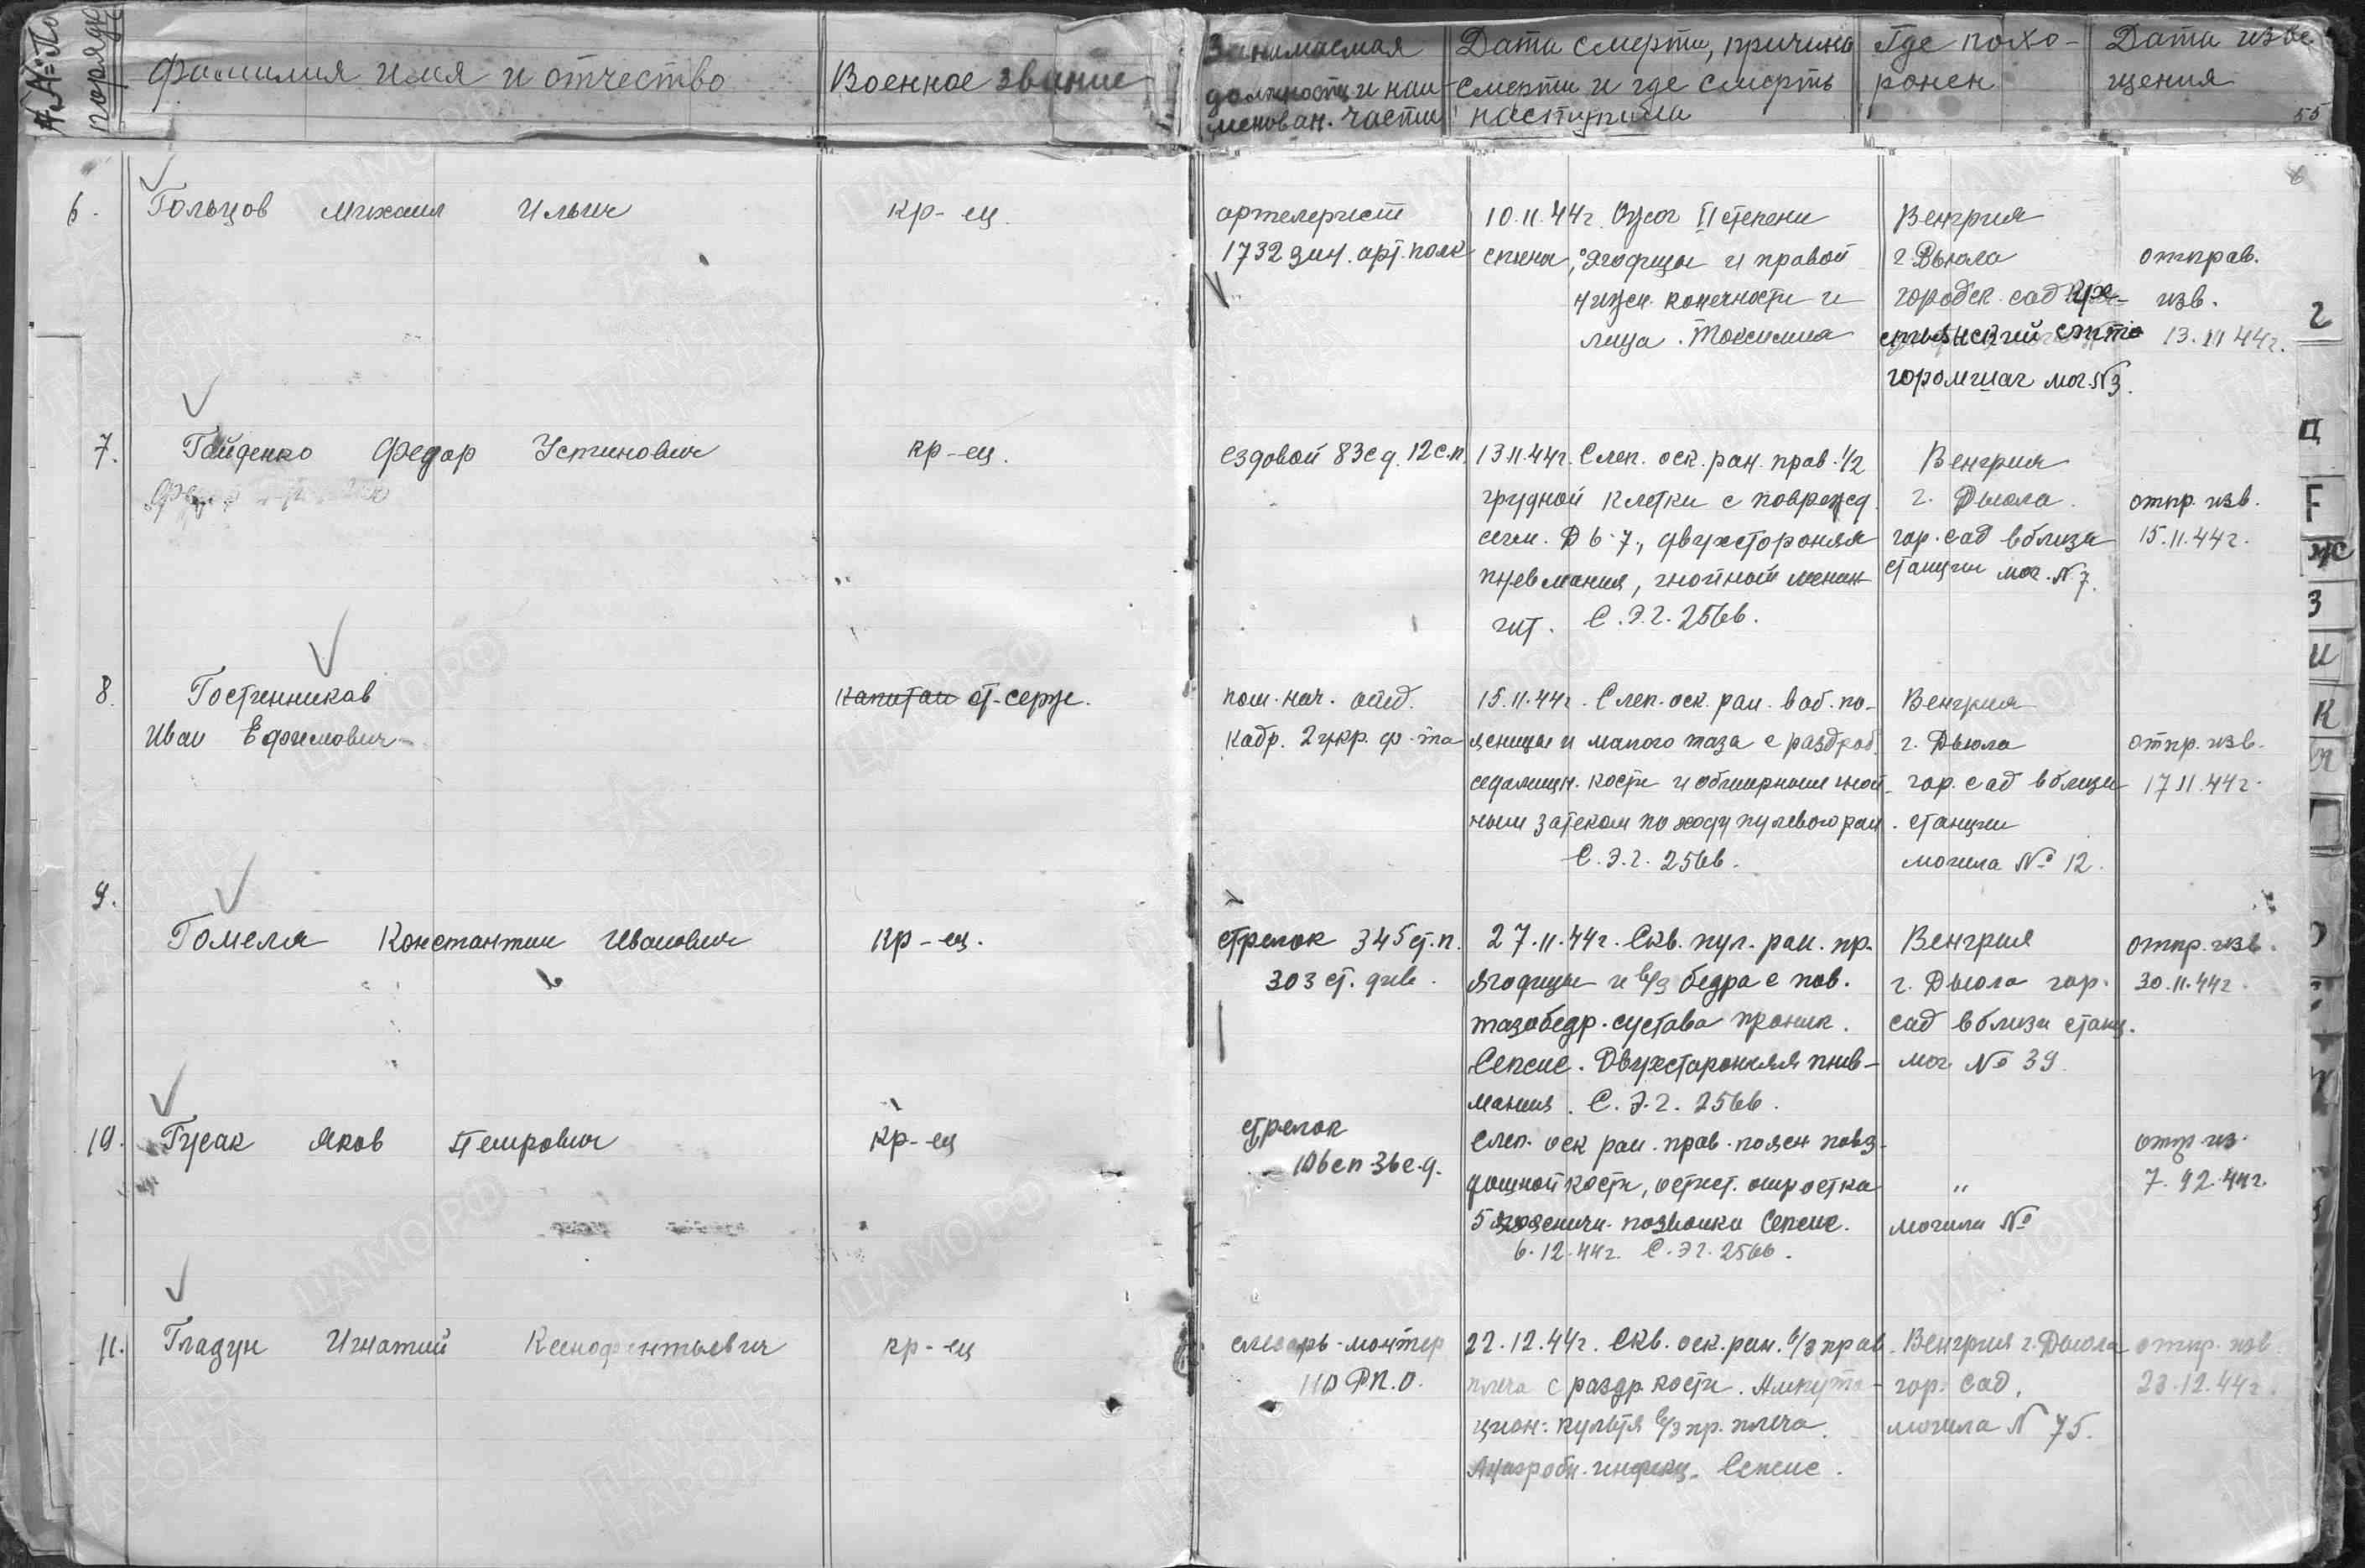 №№ по порядку
Фамилия имя и отчество
Военное звание
Занимаемая
должность и наи-
менован. части
Дата смерти, причина
смерти и где смерть
наступила
Где похо-
ронен
Дата изве
щения
55
6.
Гольцов Михаил Ильич
кр-ец.
артелерист
1732 зен. арт. полк
10.11.44г. Ожог III степени
спины, ягодицы и правой
нижн. конечности и
лица. Токсимия
Венгрия
г. Дьюла
городск. сад Кре-
стьянский
мог. №3.
отправ.
изв.
13.11.44г.
7.
Гайденко Федор Устинович
кр-ец.
ездовой 83 с.д. 12 с.п.
13.11.44г. Слеп. оск. ран. прав. 1/2
грудной клетки с поврежд.
сегм. D 6-7, двухстороняя
пневмания, гнойный менин
гит. С.Э.Г. 2566.
Венгрия
г. Дьюла.
гор. сад вблизи
станции мог. N 7.
отпр. изв.
15.11.44г.
8.
Гостинников
Иван Ефимович
капитан ст. серж.
пом. нач. отд.
кадр. 2 укр. ф-та
15.11.44г. Слеп. оск. ран. в об. по-
ясницы и малого таза с раздроб.
седалищн. кости и обширным гной-
ным затеком по ходу пулевого ран.
С.Э.Г. 2566.
Венгрия
г. Дьюла
гор. сад вблизи
станции
могила № 12.
отпр. изв.
17.11.44г.
9.
Гомеля Константин Иванович
кр-ец.
стрелок 345 ст. п.
303 ст. див.
27.11.44г. Скв. пул. ран. пр.
ягодицы и в/3 бедра с пов.
тазобедр. сустава проник.
Сепсис. Двухсторонняя пнев-
мания. С.Э.Г. 2566.
Венгрия
г. Дьюла гор.
сад вблизи станц.
мог. № 39.
отпр. изв.
30.11.44г.
10.
Гусак Яков Петрович
кр-ец
стрелок
106 сп 36 с.д.
Слеп. оск ран. прав. поясн подвз-
дошной кости, остист. отростка
5 поясничн. позвонка Сепсис.
6.12.44г. С.Э.Г. 2566.
"
могила №
отпр. из.
7.12.44г.
11.
Гладун Игнатий Ксенофонтьевич
кр-ец
слесарь-монтер
110 Р.П.О.
22.12.44г. Скв. оск. ран. в/3 прав.
плеча с раздр. кости. Ампута-
цион. культя в/3 пр. плеча.
Анаэробн. инфекц. Сепсис.
Венгрия г. Дьюла
гор. сад,
могила N 75.
отпр. изв.
23.12.44г.
Г
Д
Е
Ж
З
И
К